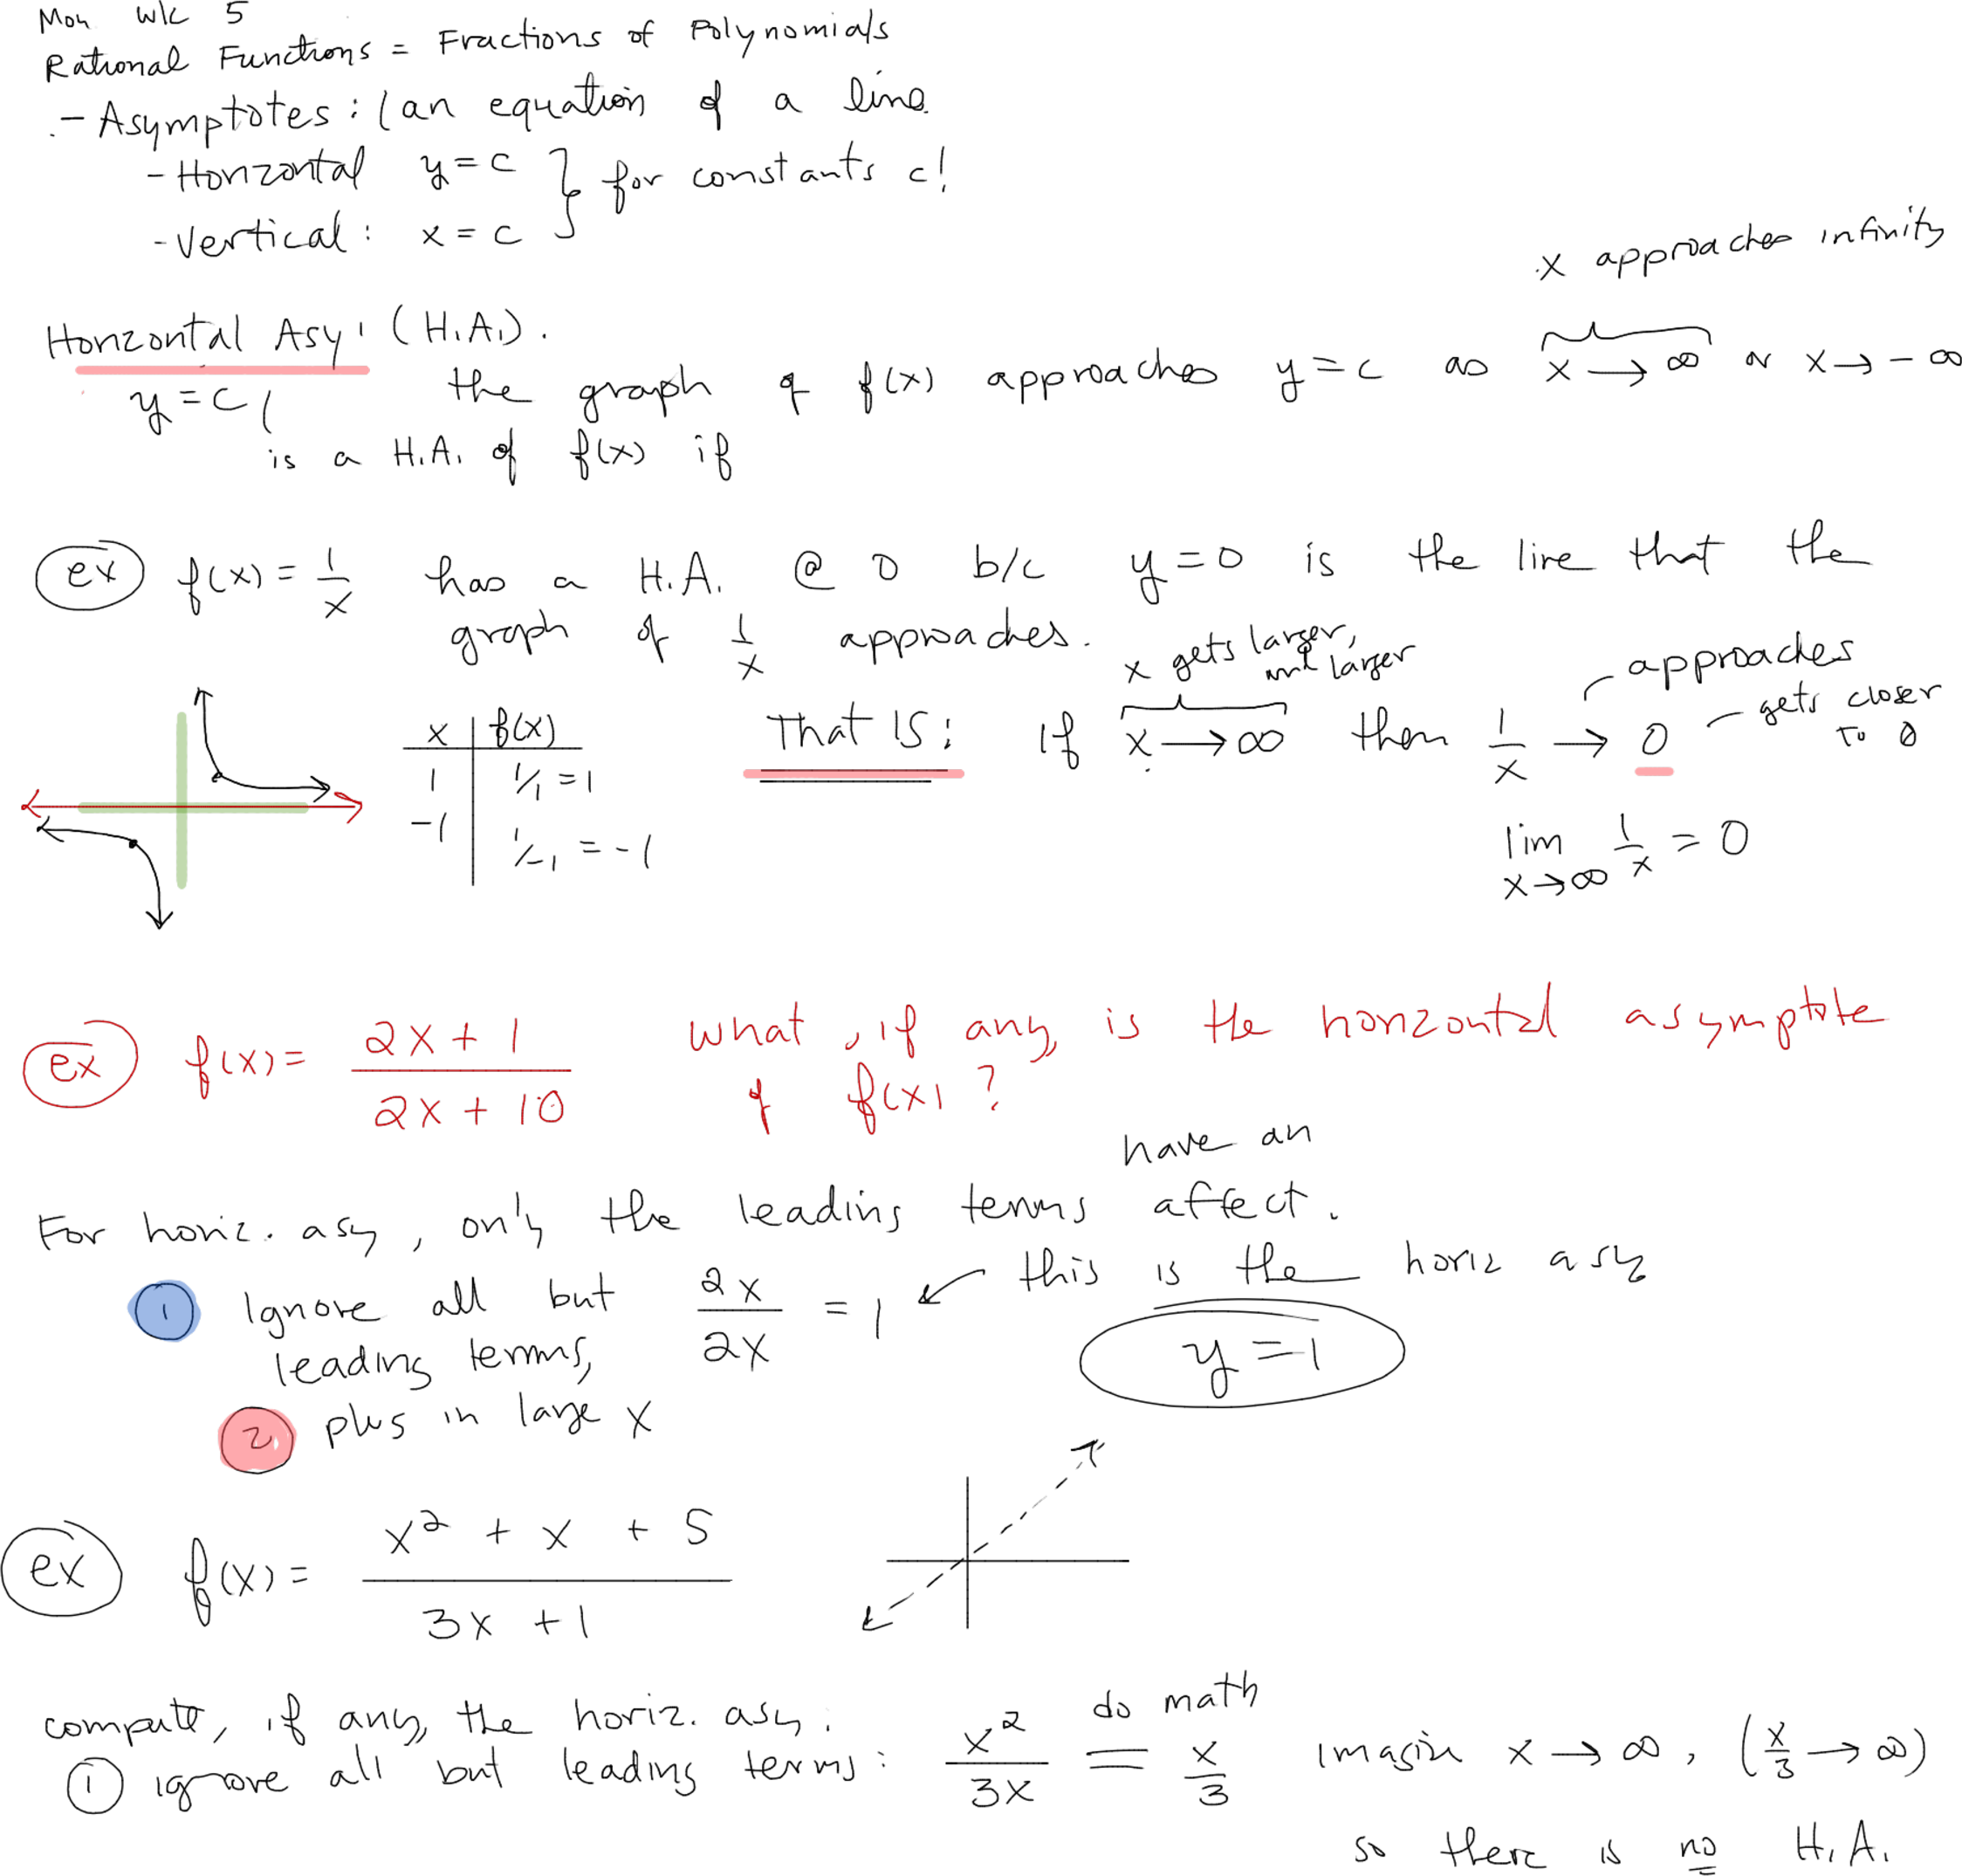 Mon wk 5
Rational Functions = Fractions of Polynomials
- Asymptotes: (an equation of a line
- Horizontal y = c } for constants c!
- Vertical: x = c
x approaches infinity
Horizontal Asy. (H.A.).
y = c, the graph of f(x) approaches y = c as x → ∞ or x → -∞
is a H.A. of f(x) if
ex f(x) = 1/x has a H.A. @ 0 b/c y = 0 is the line that the
graph of 1/x approaches.
x gets larger, and larger
approaches
gets closer to 0
That IS: if x → ∞ then 1/x → 0
x | f(x)
1 | 1/1 = 1
-1 | 1/-1 = -1
lim x→∞ 1/x = 0
ex f(x) = (2x + 1)/(2x + 10) what, if any, is the horizontal asymptote
of f(x)?
have an
For horiz. asy, only the leading terms affect.
1 Ignore all but 2x/2x = 1 ← this is the horiz asy
leading terms, y = 1
2 plug in large x
ex f(x) = (x² + x + 5)/(3x + 1)
compute, if any, the horiz. asy.
1 ignore all but leading terms: x²/3x = x/3 do math imagine x → ∞, (x/3 → ∞)
so there is no H.A.